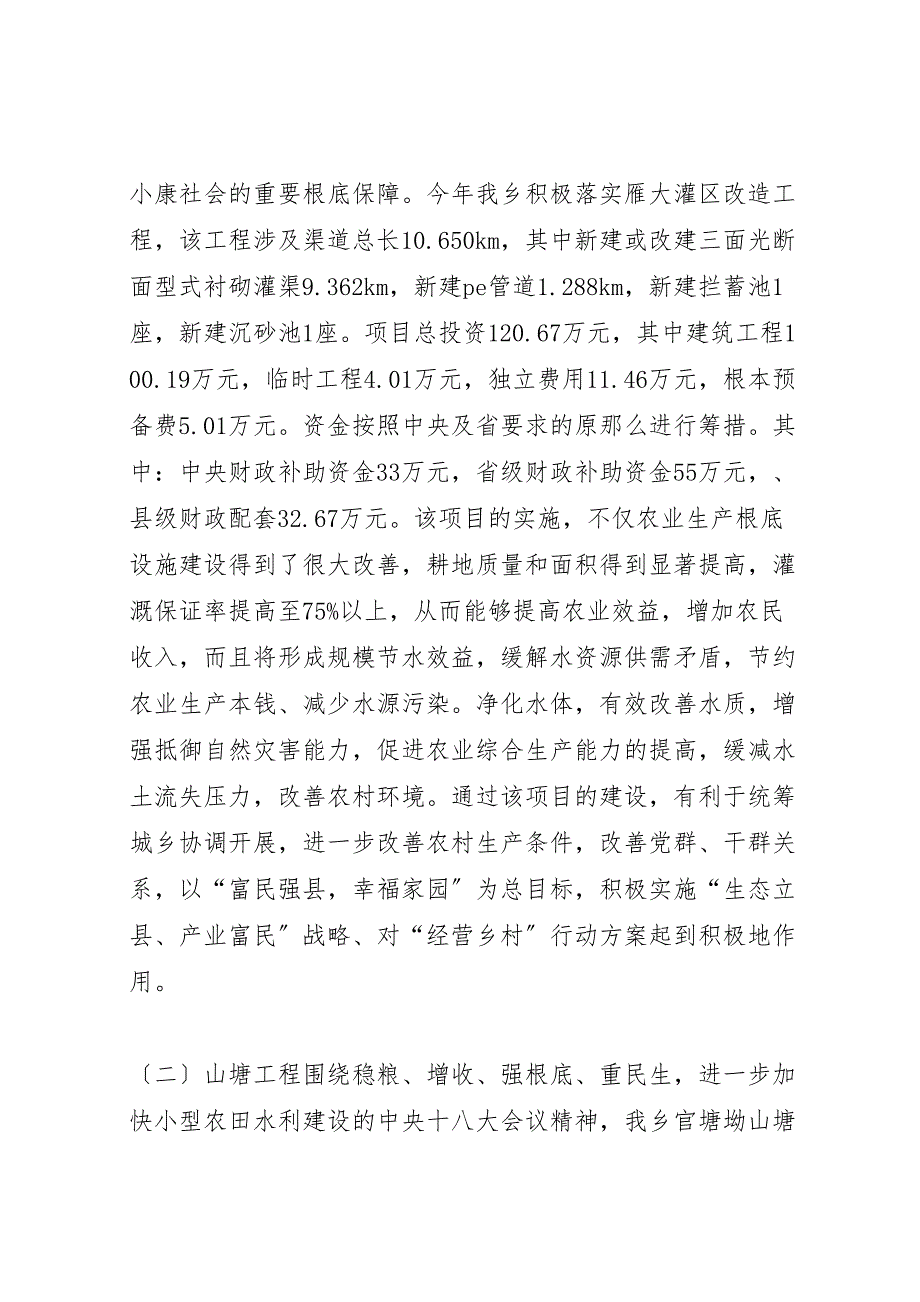 小康社会的重要根底保障。今年我乡积极落实雁大灌区改造工
程，该工程涉及渠道总长10.650km，其中新建或改建三面光断
面型式衬砌灌渠9.362km，新建pe管道1.288km，新建拦蓄池1
座，新建沉砂池1座。项目总投资120.67万元，其中建筑工程1
00.19万元，临时工程4.01万元，独立费用11.46万元，根本预
备费5.01万元。资金按照中央及省要求的原那么进行筹措。其
中：中央财政补助资金33万元，省级财政补助资金55万元，、
县级财政配套32.67万元。该项目的实施，不仅农业生产根底
设施建设得到了很大改善，耕地质量和面积得到显著提高，灌
溉保证率提高至75%以上，从而能够提高农业效益，增加农民
收入，而且将形成规模节水效益，缓解水资源供需矛盾，节约
农业生产本钱、减少水源污染。净化水体，有效改善水质，增
强抵御自然灾害能力，促进农业综合生产能力的提高，缓减水
土流失压力，改善农村环境。通过该项目的建设，有利于统筹
城乡协调开展，进一步改善农村生产条件，改善党群、干群关
系，以“富民强县，幸福家园〞为总目标，积极实施“生态立
县、产业富民〞战略、对“经营乡村〞行动方案起到积极地作
用。
〔二〕山塘工程围绕稳粮、增收、强根底、重民生，进一步加
快小型农田水利建设的中央十八大会议精神，我乡官塘坳山塘